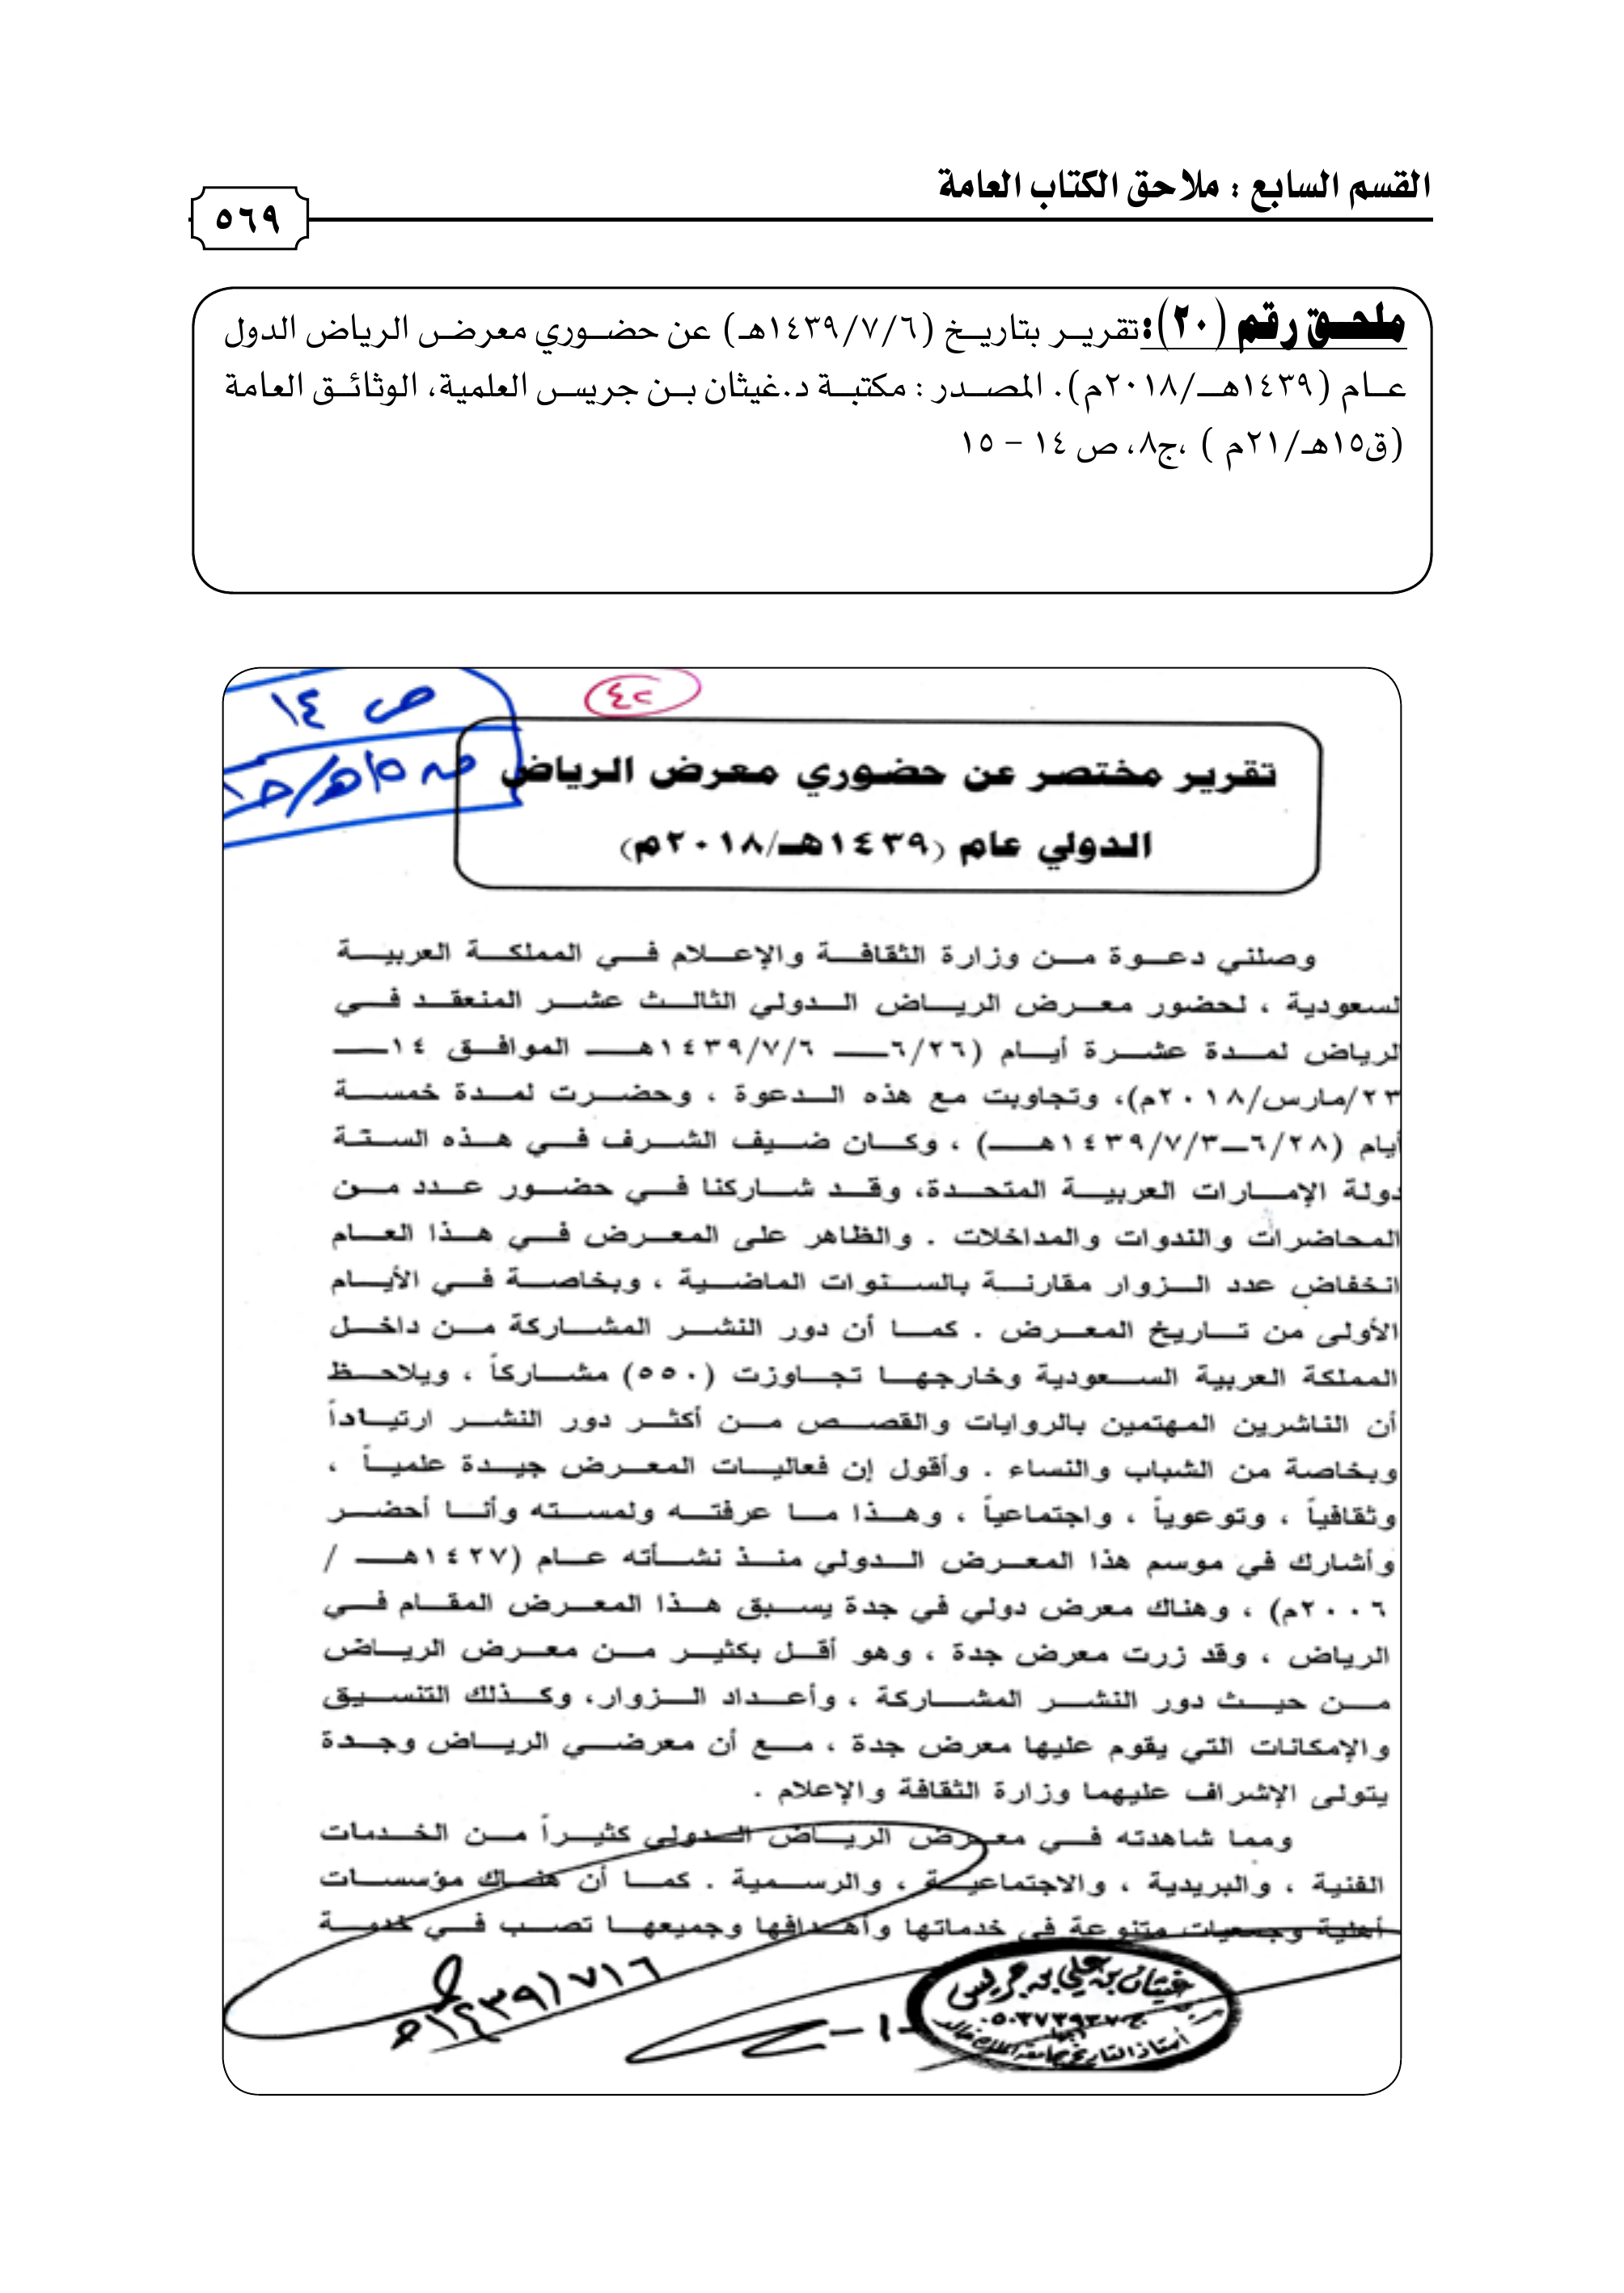 القسم السابع : ملاحق الكتاب العامة
٥٦٩
ملحق رقم (٢٠): تقرير بتاريخ (١٤٣٩/٧/٦هـ) عن حضوري معرض الرياض الدول
عام (١٤٣٩هـ/٢٠١٨م). المصدر : مكتبة د.غيثان بن جريس العلمية، الوثائق العامة
(ق١٥هـ/٢١م ) ،ج٨، ص ١٤ – ١٥
ص ١٤
٤٢
تقرير مختصر عن حضوري معرض الرياض
الدولي عام (١٤٣٩هـ/٢٠١٨م)
وصلني دعوة من وزارة الثقافة والإعلام في المملكة العربية
لسعودية ، لحضور معرض الرياض الدولي الثالث عشر المنعقد في
لرياض لمدة عشرة أيام (٦/٢٦ـــ ١٤٣٩/٧/٦هـ الموافق ١٤ـــ
٢٣/مارس/٢٠١٨م)، وتجاوبت مع هذه الدعوة ، وحضرت لمدة خمسة
أيام (٦/٢٨ـ١٤٣٩/٧/٣هـ) ، وكان ضيف الشرف في هذه الستة
دولة الإمارات العربية المتحدة، وقد شاركنا في حضور عدد من
المحاضرات والندوات والمداخلات . والظاهر على المعرض في هذا العام
انخفاض عدد الزوار مقارنة بالسنوات الماضية ، وبخاصة في الأيام
الأولى من تاريخ المعرض . كما أن دور النشر المشاركة من داخل
المملكة العربية السعودية وخارجها تجاوزت (٥٥٠) مشاركاً ، ويلاحظ
أن الناشرين المهتمين بالروايات والقصص من أكثر دور النشر ارتياداً
وبخاصة من الشباب والنساء . وأقول إن فعاليات المعرض جيدة علمياً ،
وثقافياً ، وتوعوياً ، واجتماعياً ، وهذا ما عرفته ولمسته وأنا أحضر
وأشارك في موسم هذا المعرض الدولي منذ نشأته عام (١٤٢٧هـ /
٢٠٠٦م) ، وهناك معرض دولي في جدة يسبق هذا المعرض المقام في
الرياض ، وقد زرت معرض جدة ، وهو أقل بكثير من معرض الرياض
من حيث دور النشر المشاركة ، وأعداد الزوار، وكذلك التنسيق
والإمكانات التي يقوم عليها معرض جدة ، مع أن معرضي الرياض وجدة
يتولى الإشراف عليهما وزارة الثقافة والإعلام .
ومما شاهدته في معرض الرياض الدولي كثيراً من الخدمات
الفنية ، والبريدية ، والاجتماعية ، والرسمية . كما أن هناك مؤسسات
أهلية وجمعيات متنوعة في خدماتها وأهدافها وجميعها تصب في خدمة
١٤٣٩/٧/٦هـ
-١-
غيثان بن علي بن جريس
أستاذ التاريخ بجامعة الملك خالد